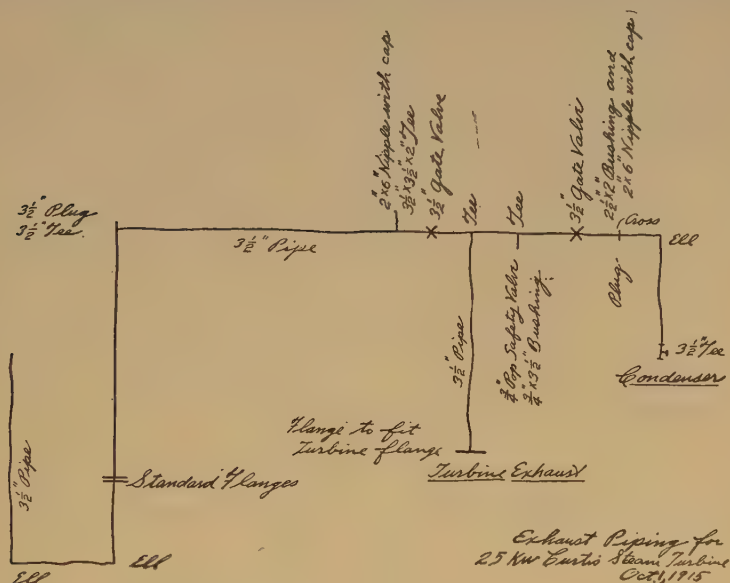 2"x6" Nipple with cap
3½"x3½"x2" Tee
3½" Gate Valve
Tee
Tee
3½" Gate Valve
2½"x2" Bushing and
2"x6" Nipple with cap
Cross
3½" Plug
3½" Tee.
3½" Pipe
Ell
Plug
3½" Pipe
¾" Pop Safety Valve
¾"x3½" Bushing.
3½" Tee
Condenser
Flange to fit
Turbine flange
Turbine Exhaust
3½" Pipe
Standard Flanges
Ell
Ell
Exhaust Piping for
25 Kw Curtis Steam Turbine
Oct 1, 1915